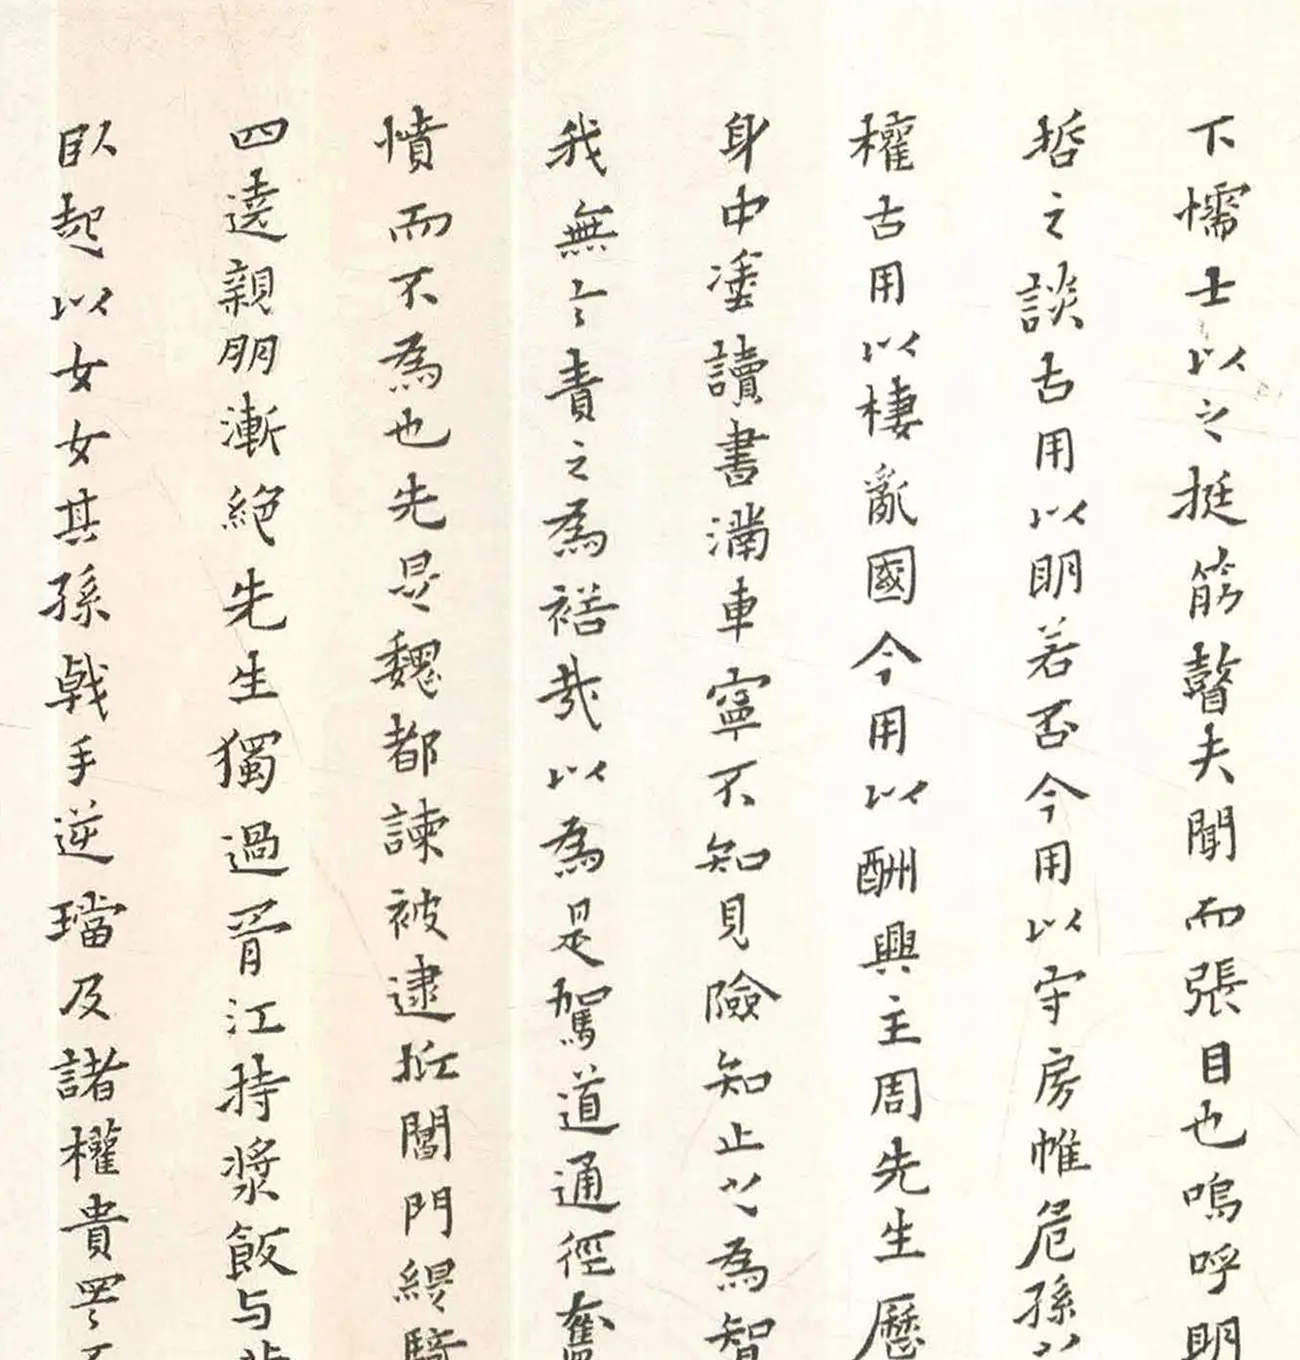 下懦士以之挺筋瞽夫聞而張目也嗚呼明
哲之談古用以明若否今用以守房帷危孫以
權古用以棲亂國今用以酬興主周先生歷
身中塗讀書滿車寧不知見險知止之為智
我無令責之為褡哉以為是駕道通徑奮
憤而不為也先是魏都諫被逮拆閶門緹騎
四遶親朋漸絕先生獨過胥江持漿飯与
臥起以女女其孫戟手逆璫及諸權貴罵不